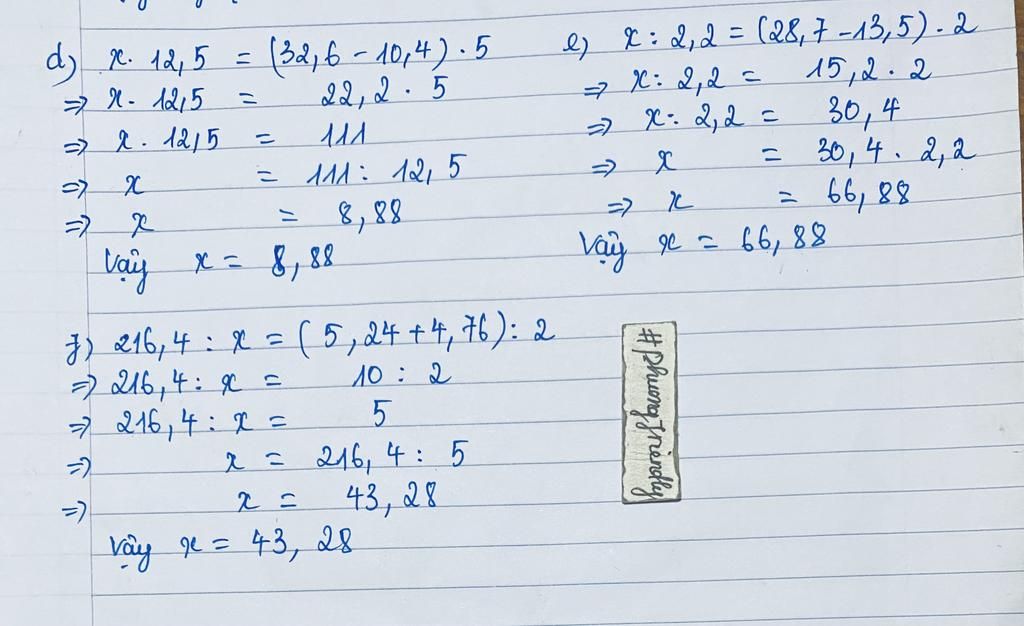 d) x. 12,5 = (32,6 - 10,4) . 5
=> x. 12,5 = 22,2 . 5
=> x. 12,5 = 111
=> x = 111 : 12,5
=> x = 8,88
Vậy x = 8,88
e) x : 2,2 = (28,7 - 13,5) . 2
=> x : 2,2 = 15,2 . 2
=> x : 2,2 = 30,4
=> x = 30,4 . 2,2
=> x = 66,88
Vậy x = 66,88
f) 216,4 : x = (5,24 + 4,76) : 2
=> 216,4 : x = 10 : 2
=> 216,4 : x = 5
=> x = 216,4 : 5
=> x = 43,28
Vậy x = 43,28
#phuong_friendly